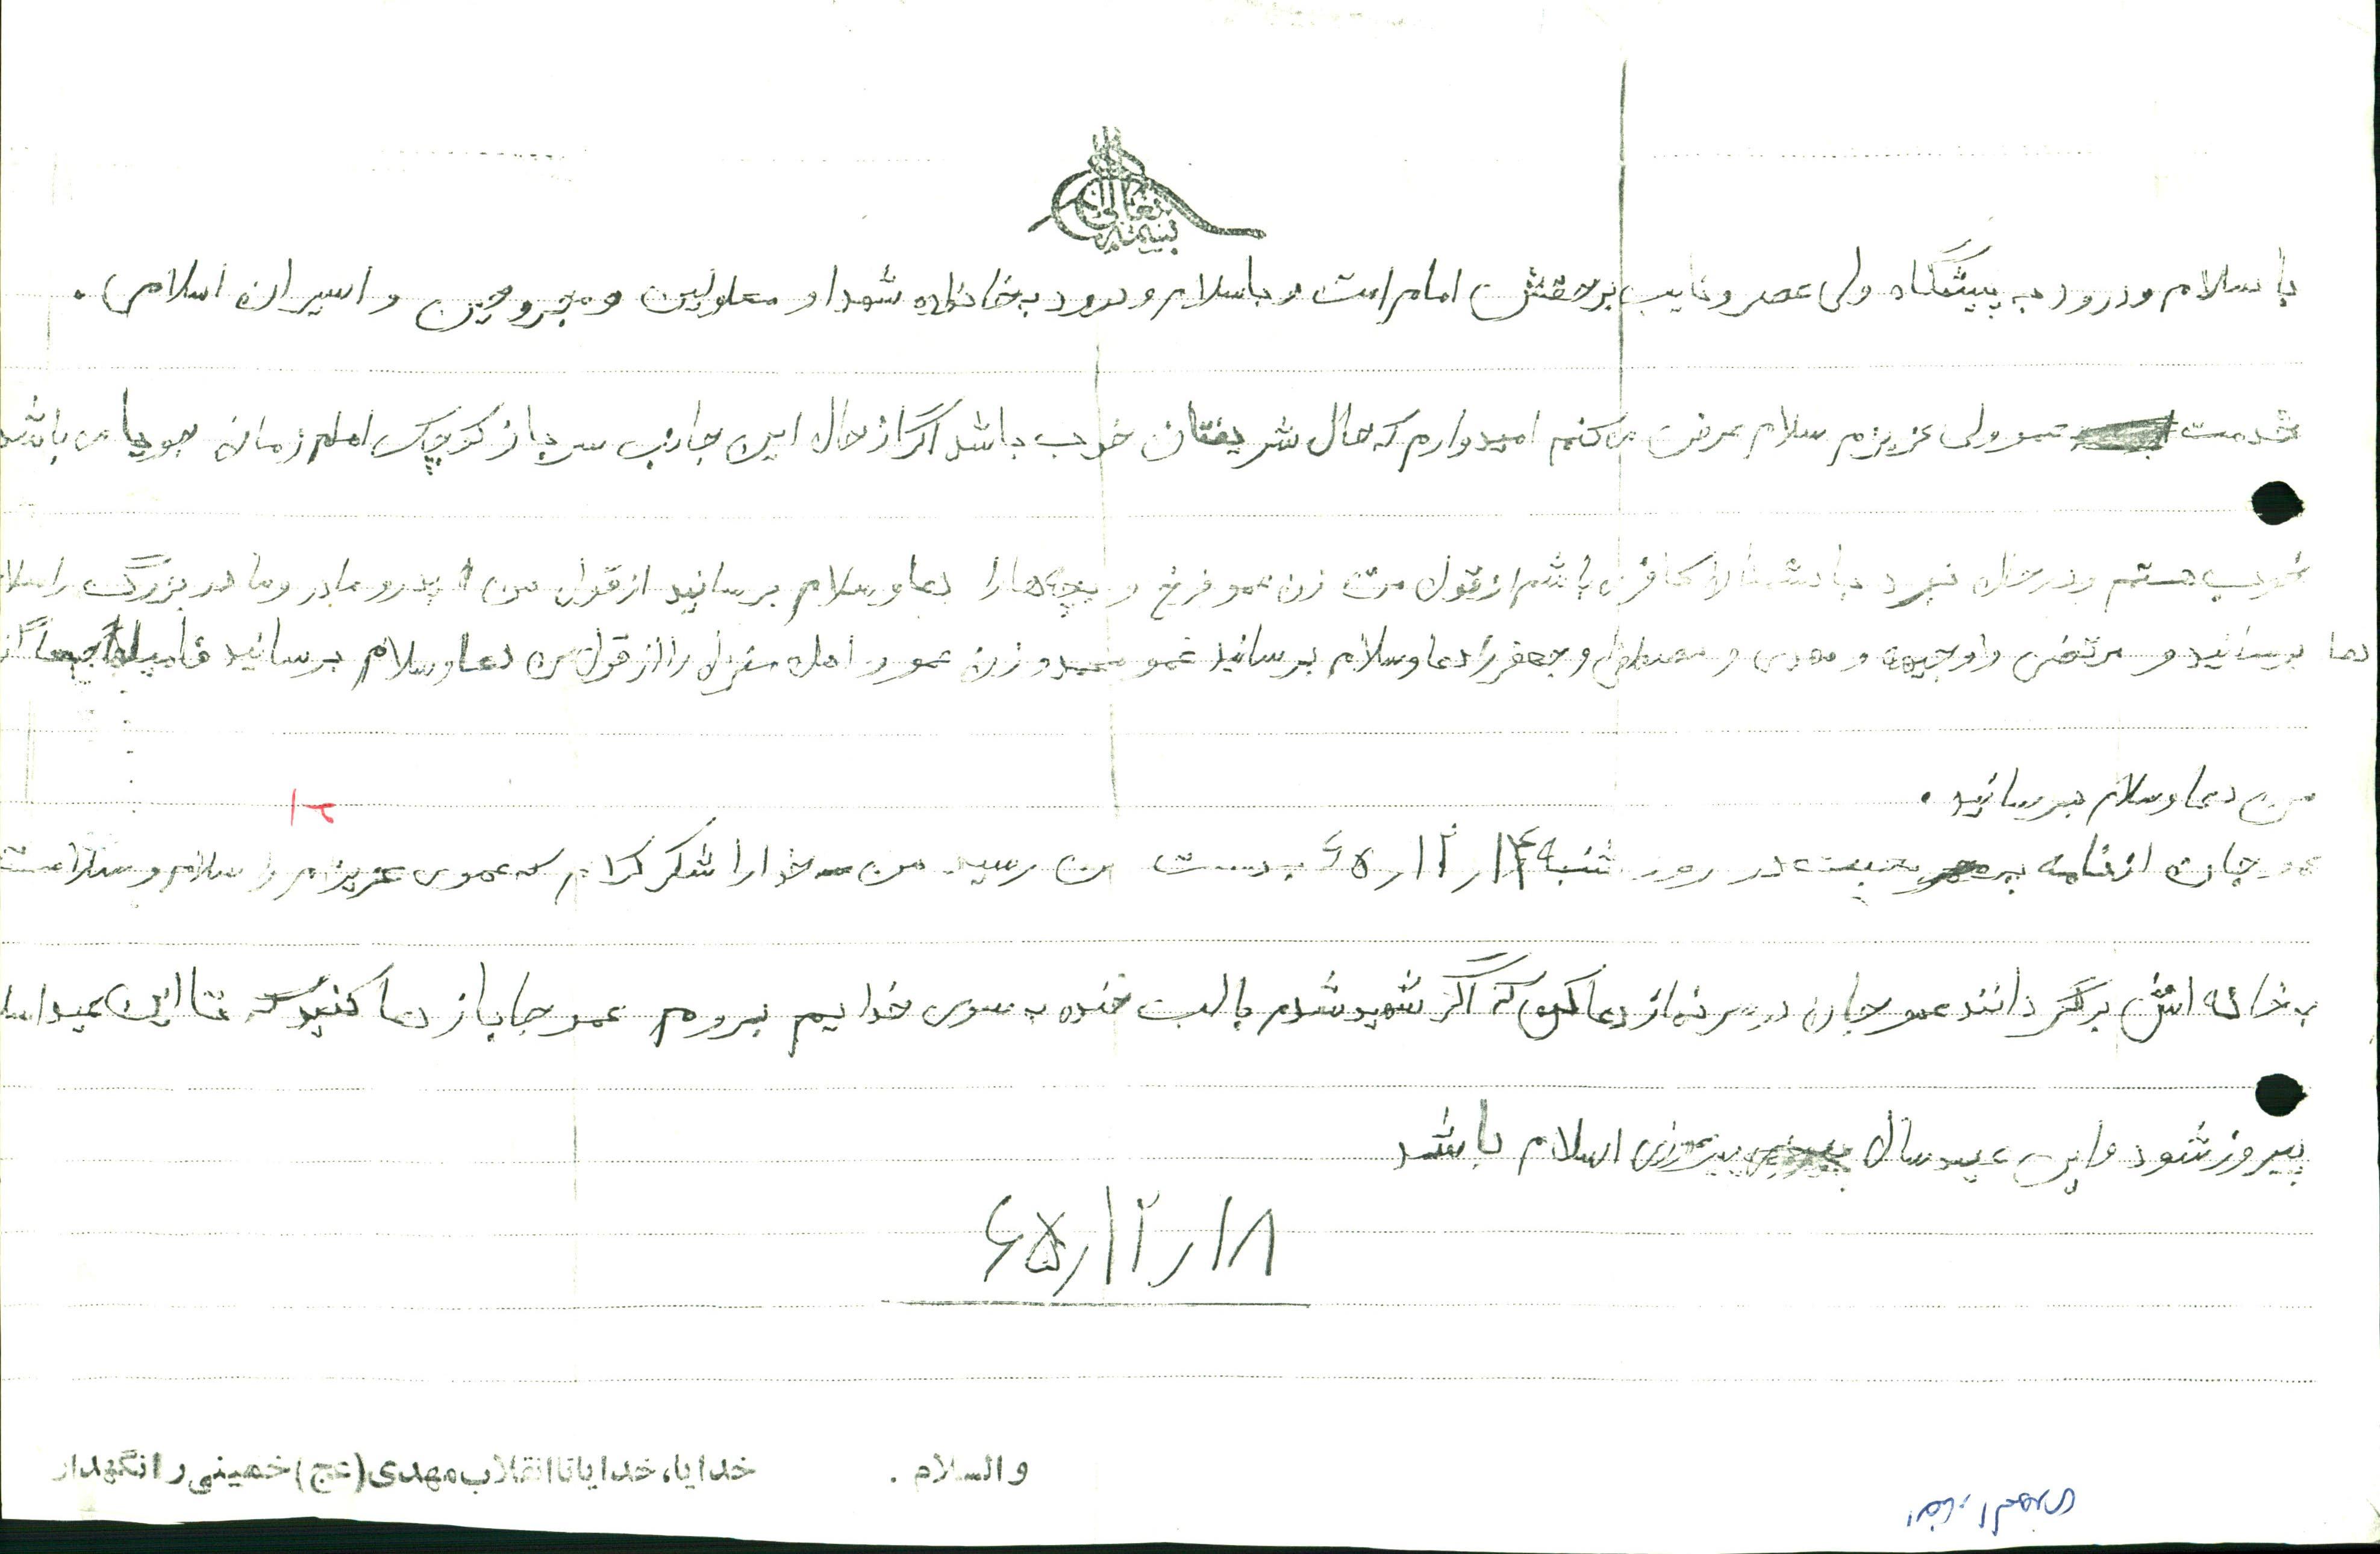 بسمه تعالی
با سلام و درود به پیشگاه ولی عصر و نایب برحقش امام امت و با سلام و درود به خانواده شهدا و معلولین و مجروحین و اسیران اسلامی .
خدمت عمو ولی عزیزم سلام عرض می کنم امیدوارم که حال شریفتان خوب باشد اگر از حال این جانب سرباز کوچک امام زمان جویا می باشد
خوب هستم و در حال نبرد با دشمنان کافر می باشم از قول من زن عمو فرخ و بچه ها را دعا و سلام برسانید از قول من پدر و مادر و مادر بزرگ را سلام
دعا برسانید و مرتضی و وجیهه و مهدی و مصطفی و جعفر را دعا و سلام برسانید عمو محمد و زن عمو و اهل منزل را از قول من دعا و سلام برسانید فامیل
من دعا و سلام برسانید .
۱۲
عمو جان از نامه پر محبت در روز شنبه ۱۴ ر ۱۲ ر ۶۵ بدست من رسید من خدا را شکر کردم که عموی عزیزم را سلام و سلامت
به خانه اش برگرداند عمو جان در سر نماز دعا کن که اگر شهید شدم با لب خنده به سوی خدایم بروم عمو جان باز دعا کنید که تا این عید اسلام
پیروز شود و این عید سال پیروزی اسلام باشد
۱۸ ر ۱۲ ر ۶۵
والسلام .
خدایا، خدایا تا انقلاب مهدی (عج) خمینی را نگهدار